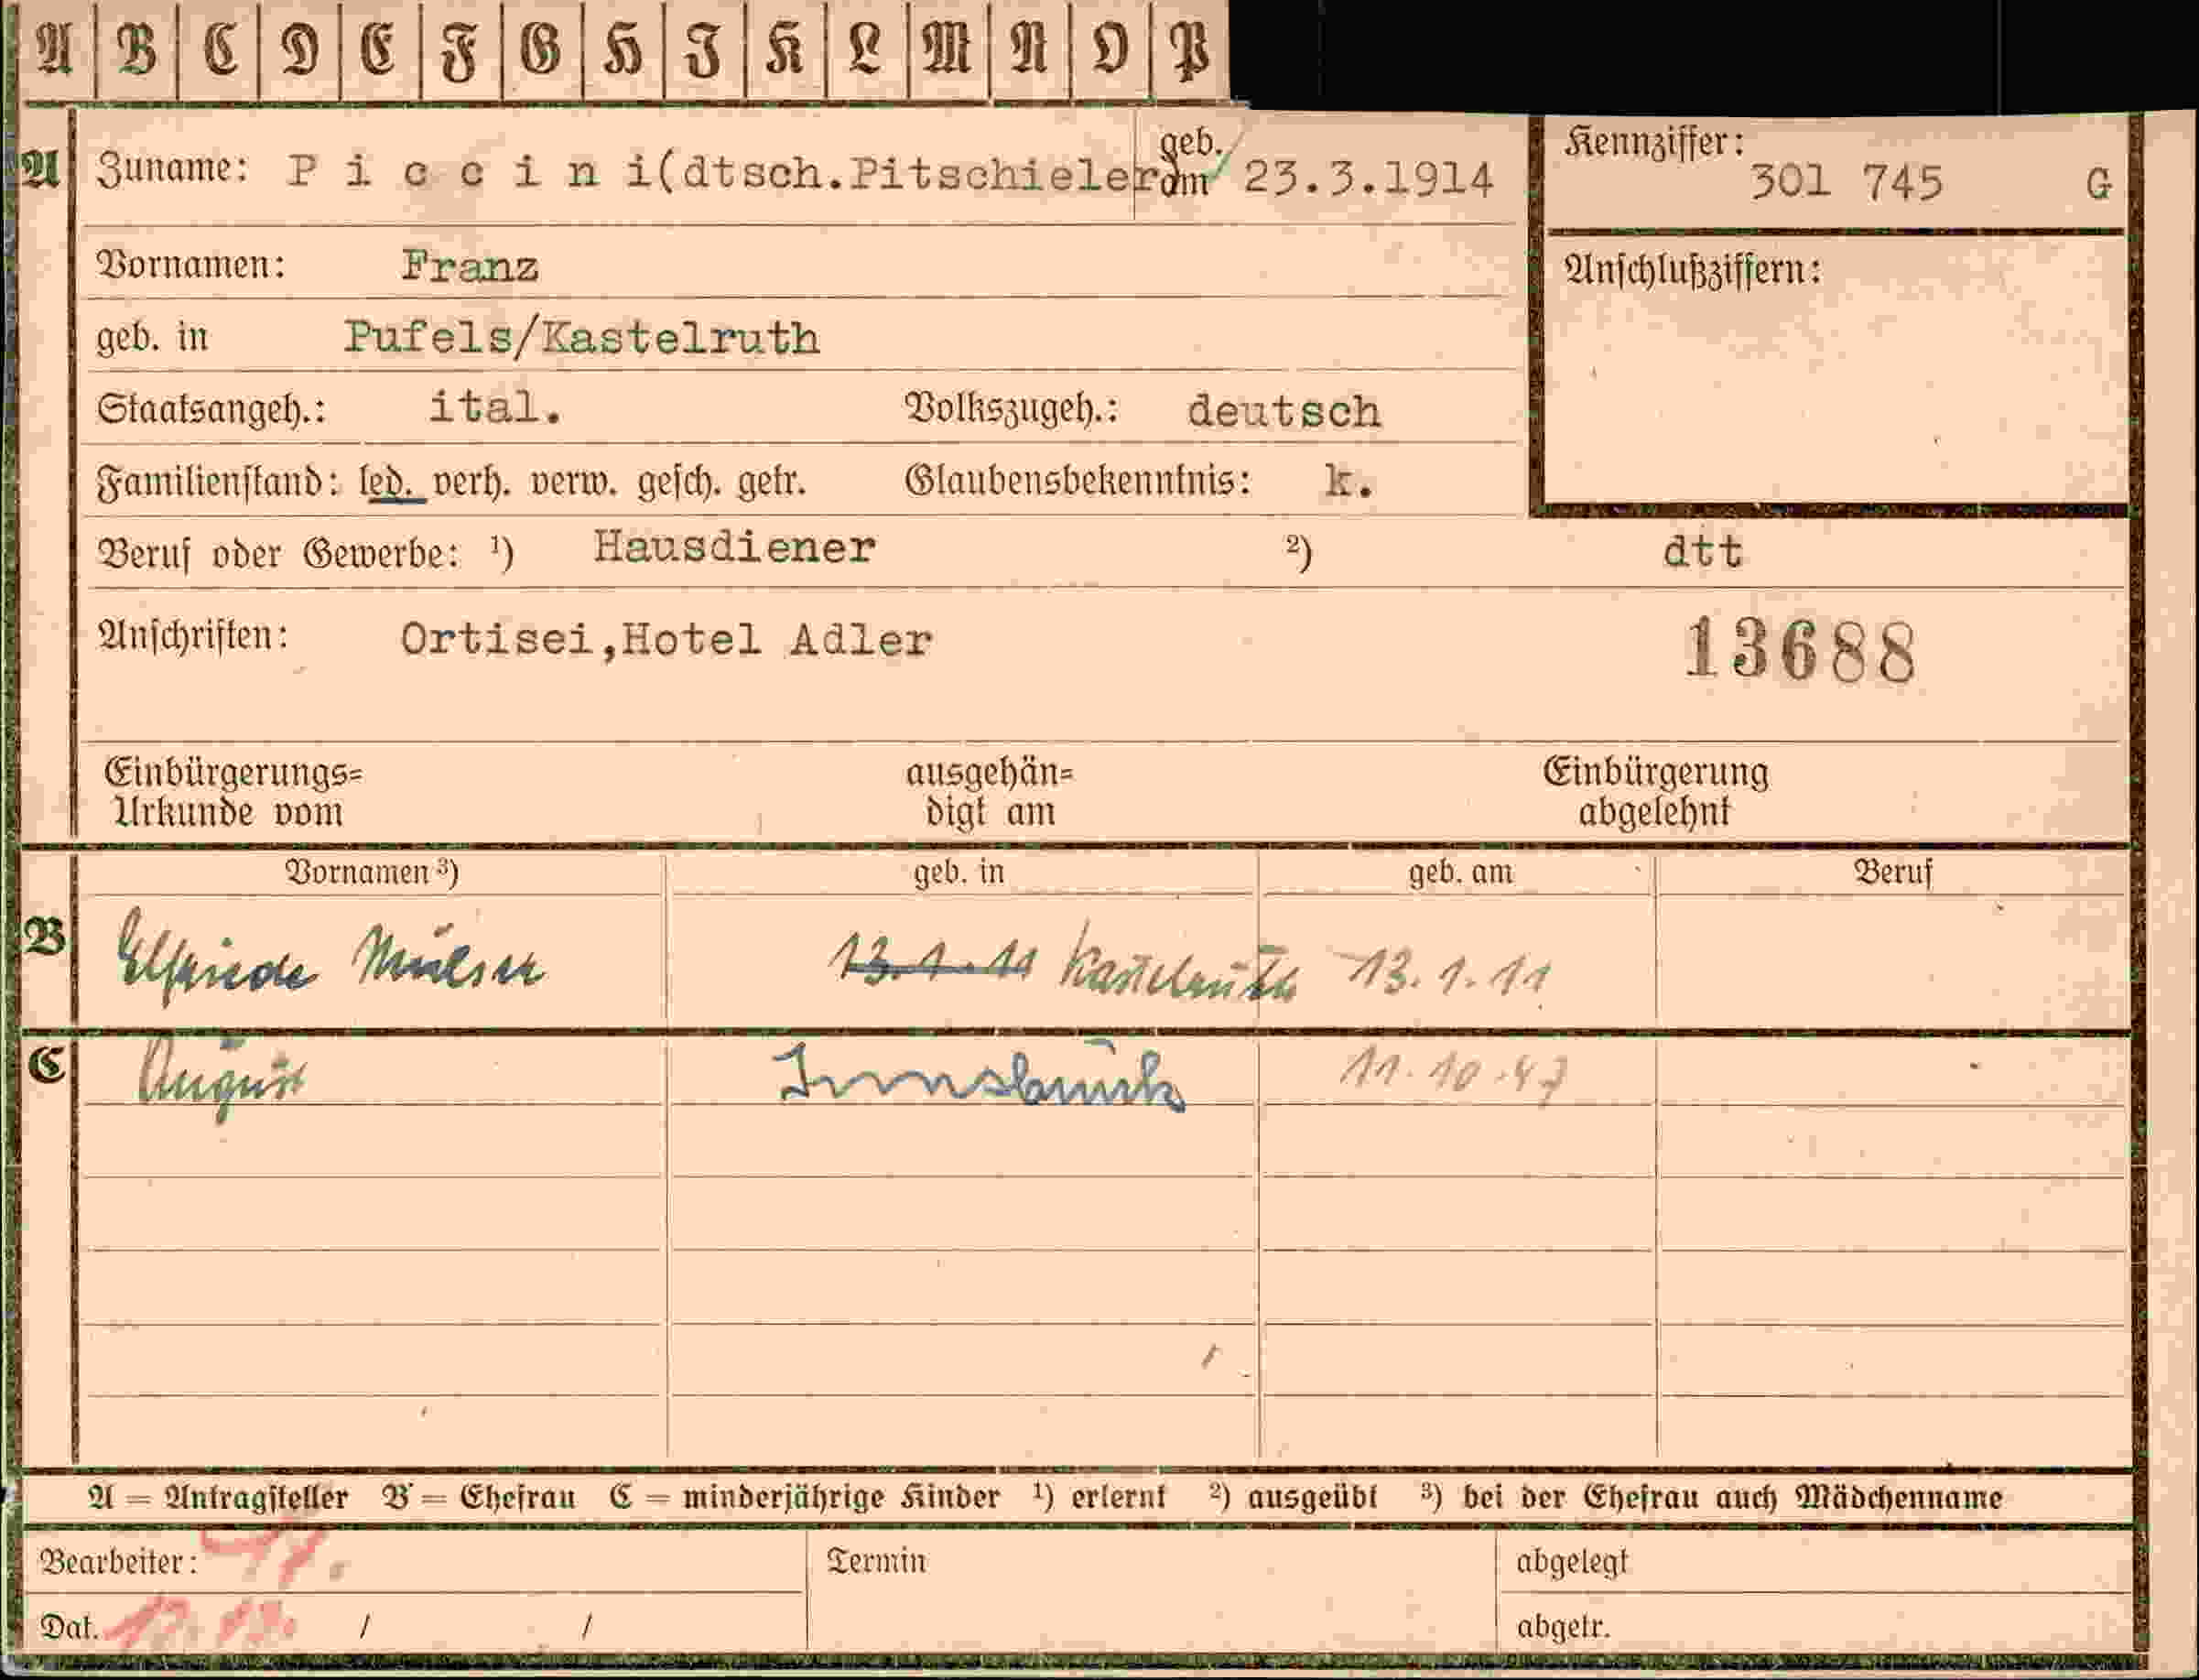 A B C D E F G H I K L M N O P
A Zuname: P i c c i n i(dtsch.Pitschieler geb. am 23.3.1914 Kennziffer: 301 745 G
Vornamen: Franz Anschlußziffern:
geb. in Pufels/Kastelruth
Staatsangeh.: ital. Volkszugeh.: deutsch
Familienstand: led. verh. verw. gesch. getr. Glaubensbekenntnis: k.
Beruf oder Gewerbe: ¹) Hausdiener ²) dtt
Anschriften: Ortisei,Hotel Adler 13688
Einbürgerungs= ausgehän= Einbürgerung
Urkunde vom digt am abgelehnt
Vornamen ³) geb. in geb. am Beruf
B Elfriede Mulser 13.1.11 Kastelruth 13.1.11
C August Innsbruck 11.10.47
A = Antragsteller B = Ehefrau C = minderjährige Kinder ¹) erlernt ²) ausgeübt ³) bei der Ehefrau auch Mädchenname
Bearbeiter: Termin abgelegt
Dat. / / abgetr.